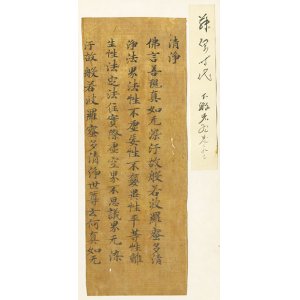 清淨
佛言善現真如无染汙故般若波羅蜜多清
淨法界法性不虛妄性不變異性平等性離
生性法定法住實際虛空界不思議界无染
汙故般若波羅蜜多清淨世尊云何真如无